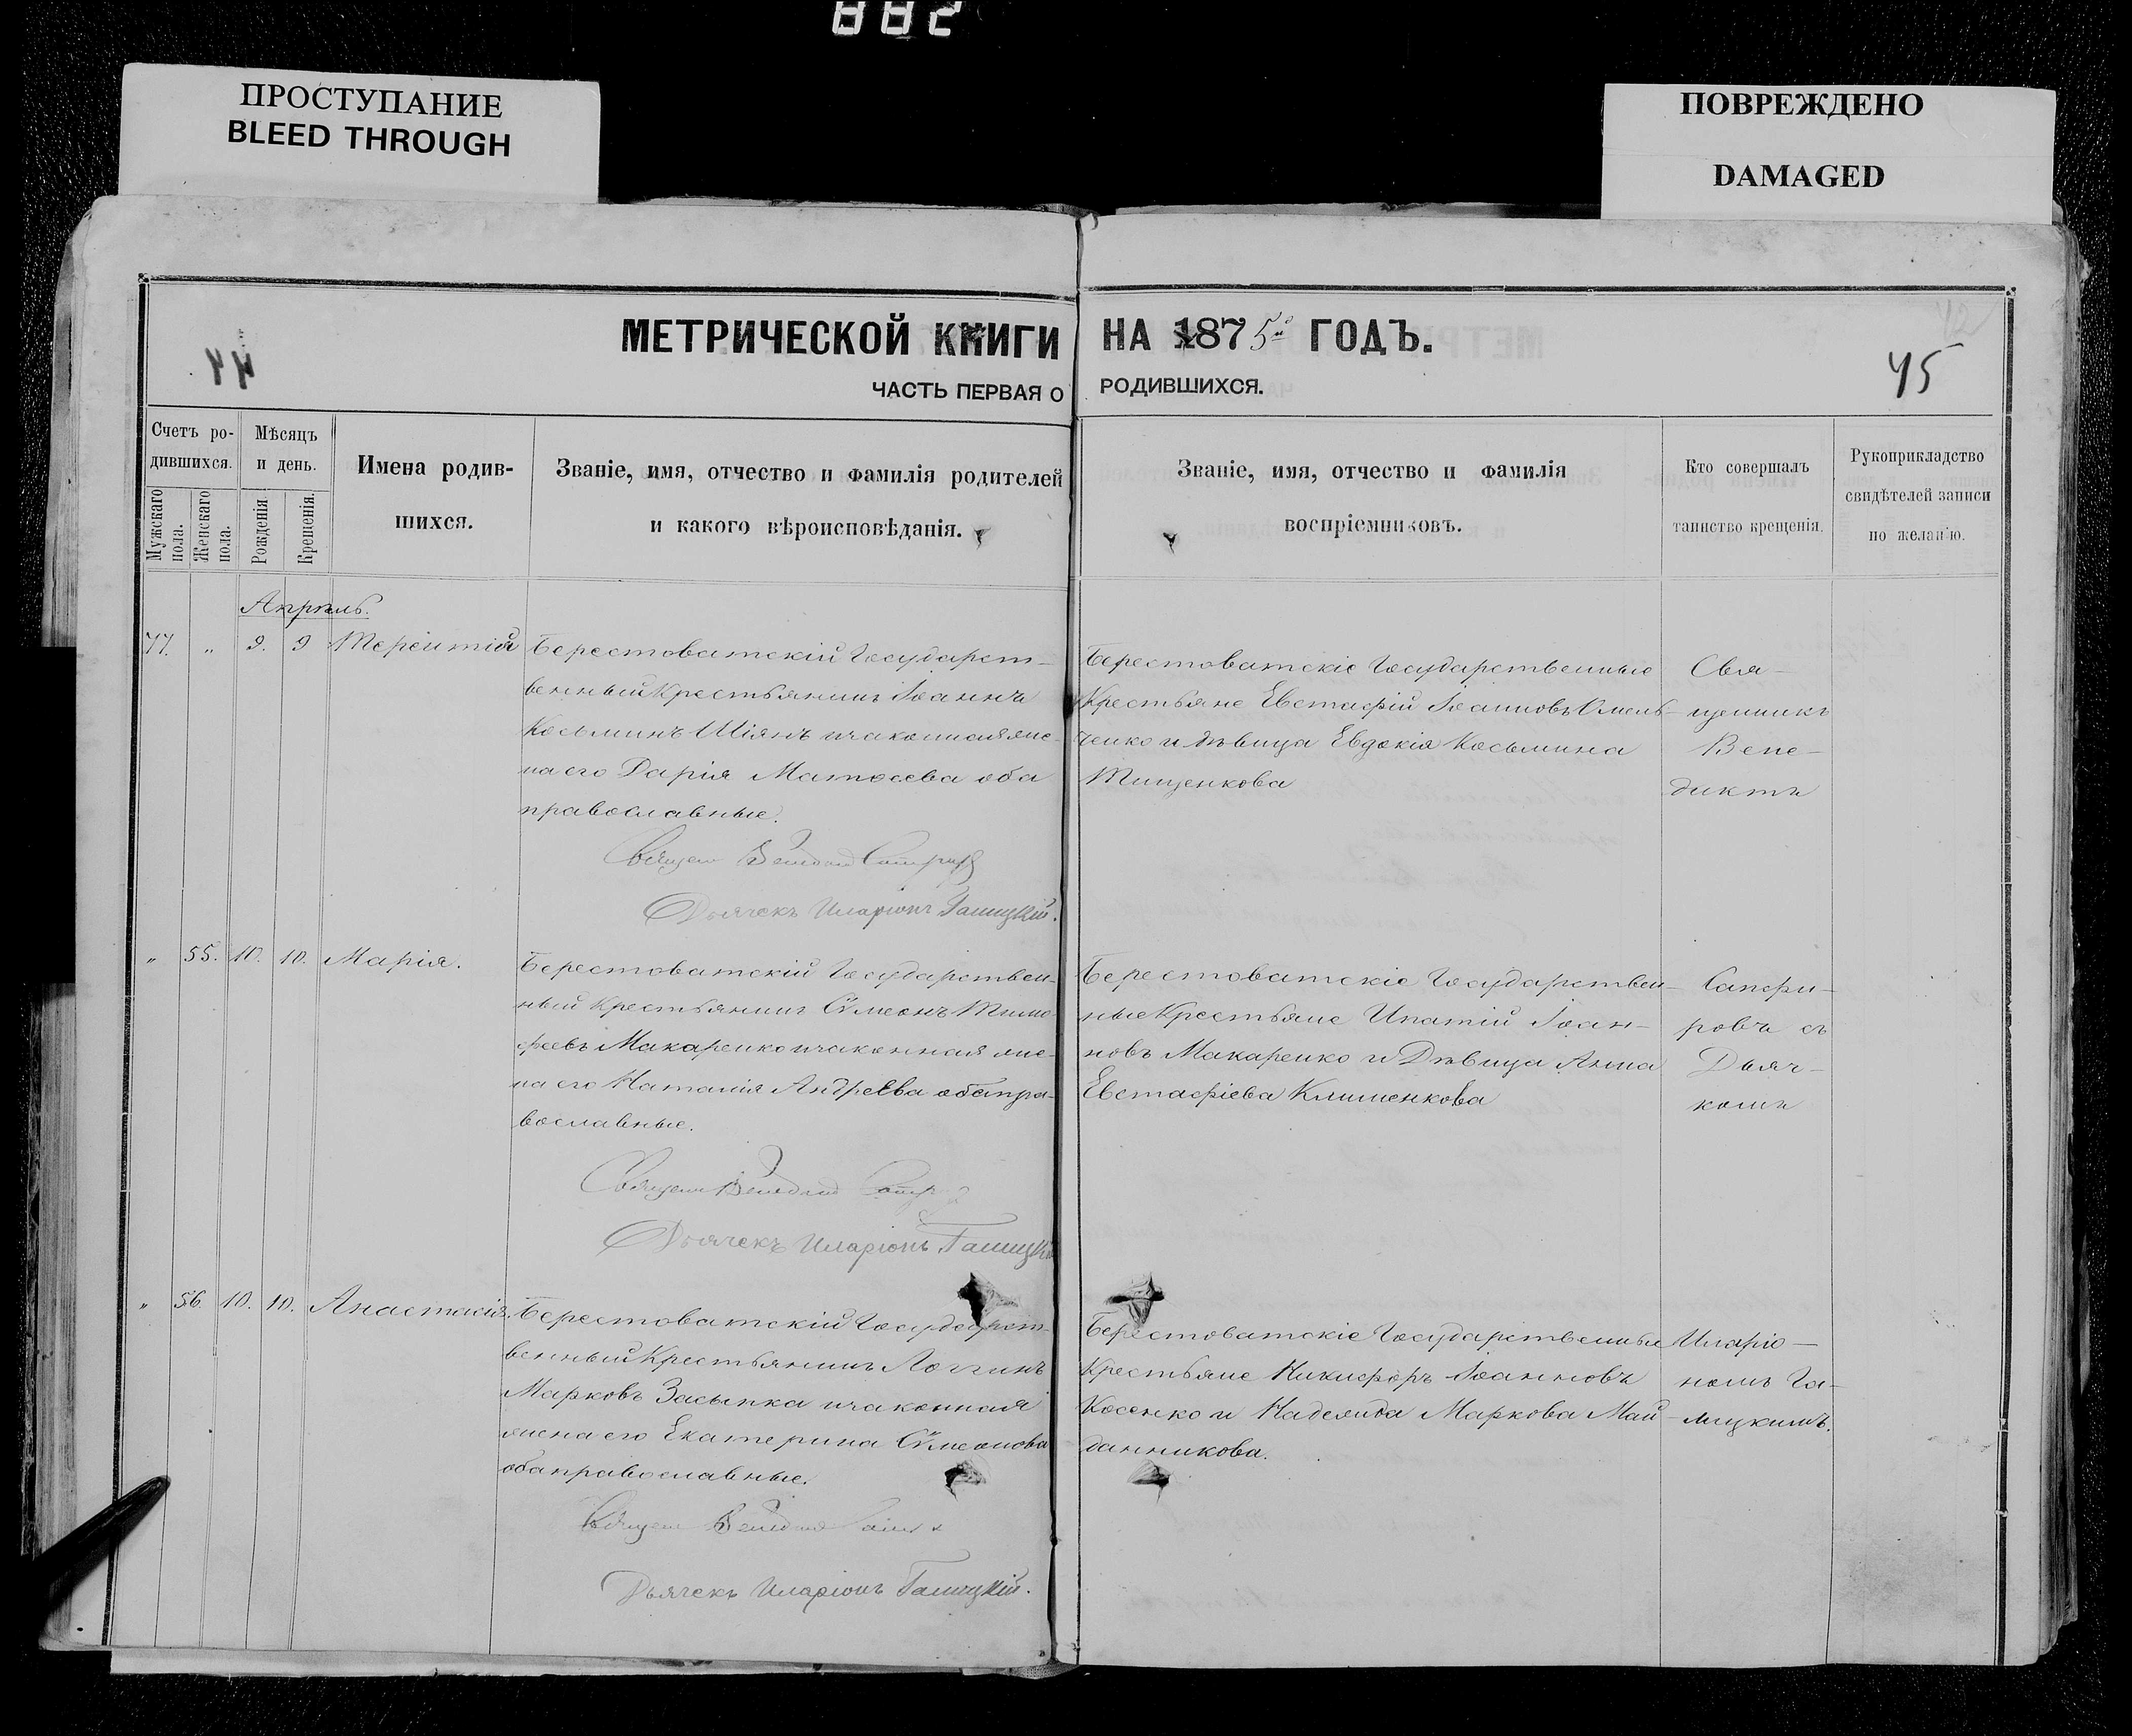 882
ПРОСТУПАНИЕ
BLEED THROUGH
ПОВРЕЖДЕНО
DAMAGED
МЕТРИЧЕСКОЙ КНИГИ НА 1875й ГОДЪ.
45
ЧАСТЬ ПЕРВАЯ О РОДИВШИХСЯ.
Счетъ ро-
дившихся.
Мужскаго пола.
Женскаго пола.
Мѣсяцъ
и день.
Рожденія
Крещенія.
Имена родив-
шихся.
Званіе, имя, отчество и фамилія родителей
и какого вѣроисповѣданія.
Званіе, имя, отчество и фамилія
воспріемниковъ.
Кто совершалъ
таинство крещенія.
Рукоприкладство
свидѣтелей записи
по желанію.
Апрѣль.
77. " 9. 9 Терентій
Берестоватскій Государст-
венный Крестьянинъ Іоаннъ
Косьминъ Шіянъ и законная же-
на его Дарія Матѳеева оба
православные.
Священ Венедикт
Дьячекъ Иларіонъ Галицкій.
Берестоватскіе Государственные
Крестьяне Евстафій Іоанновъ Омель-
ченко и дѣвица Евдокія Косьмина
Тищенкова
Свя-
щенникъ
Вене-
диктъ
" 55. 10. 10. Марія.
Берестоватскій Государствен-
ный Крестьянинъ Сѵмеонъ Тимо-
феевъ Макаренко и законная же-
на его Наталія Андреева оба пра-
вославные.
Священ Венедикт
Дьячекъ Иларіонъ Галицкій
Берестоватскіе Государствен-
ные Крестьяне Ипатій Іоан-
новъ Макаренко и Дѣвица Анна
Евстафіева Клименкова
Сапфи-
ровъ съ
Дьяч-
комъ
" 56. 10. 10. Анастасія.
Берестоватскій Государст-
венный Крестьянинъ Логгинъ
Марковъ Засыпка и законная
жена его Екатерина Сѵмеонова
оба православные.
Священ Венедикт
Дьячекъ Иларіонъ Галицкій.
Берестоватскіе Государственные
Крестьяне Никифоръ Іоанновъ
Косенко и Надежда Маркова Май-
данникова.
Иларіо-
номъ Га-
лицкимъ.